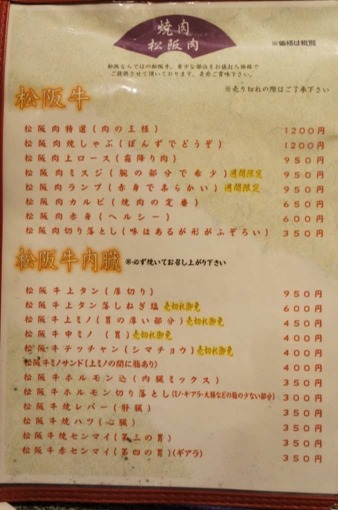 焼肉
松阪肉
※価格は税別
松阪ならではの松阪牛。希少な部位をお値打ち価格で
ご提供させて頂いております。是非ご賞味下さい。
※売り切れの際はご了承下さい
松阪牛
松阪肉特選(肉の王様) 1200円
松阪肉焼しゃぶ(ぽんずでどうぞ) 1200円
松阪肉上ロース(霜降り肉) 950円
松阪肉ミスジ(腕の部分で希少)週間限定 950円
松阪肉ランプ(赤身で柔らかい)週間限定 950円
松阪肉カルビ(焼肉の定番) 650円
松阪肉赤身(ヘルシー) 600円
松阪肉切り落とし(味はあるが形がふぞろい) 350円
松阪牛内臓 ※必ず焼いてお召し上がり下さい
松阪牛上タン(厚切り) 950円
松阪牛上タン落しねぎ塩 売切れ御免 600円
松阪牛上ミノ(胃の厚い部分)売切れ御免 450円
松阪牛中ミノ (胃)売切れ御免 400円
松阪牛テッチャン(シマチョウ)売切れ御免 400円
松阪牛ミノサンド(上ミノの間に脂あり) 400円
松阪牛ホルモン込(内臓ミックス) 350円
松阪牛ホルモン切り落とし(ミノ・ギアラ・大腸などの脂の少ない部分) 300円
松阪牛焼レバー(肝臓) 350円
松阪牛焼ハツ(心臓) 350円
松阪牛焼センマイ(第三の胃) 350円
松阪牛赤センマイ(第四の胃)(ギアラ) 350円